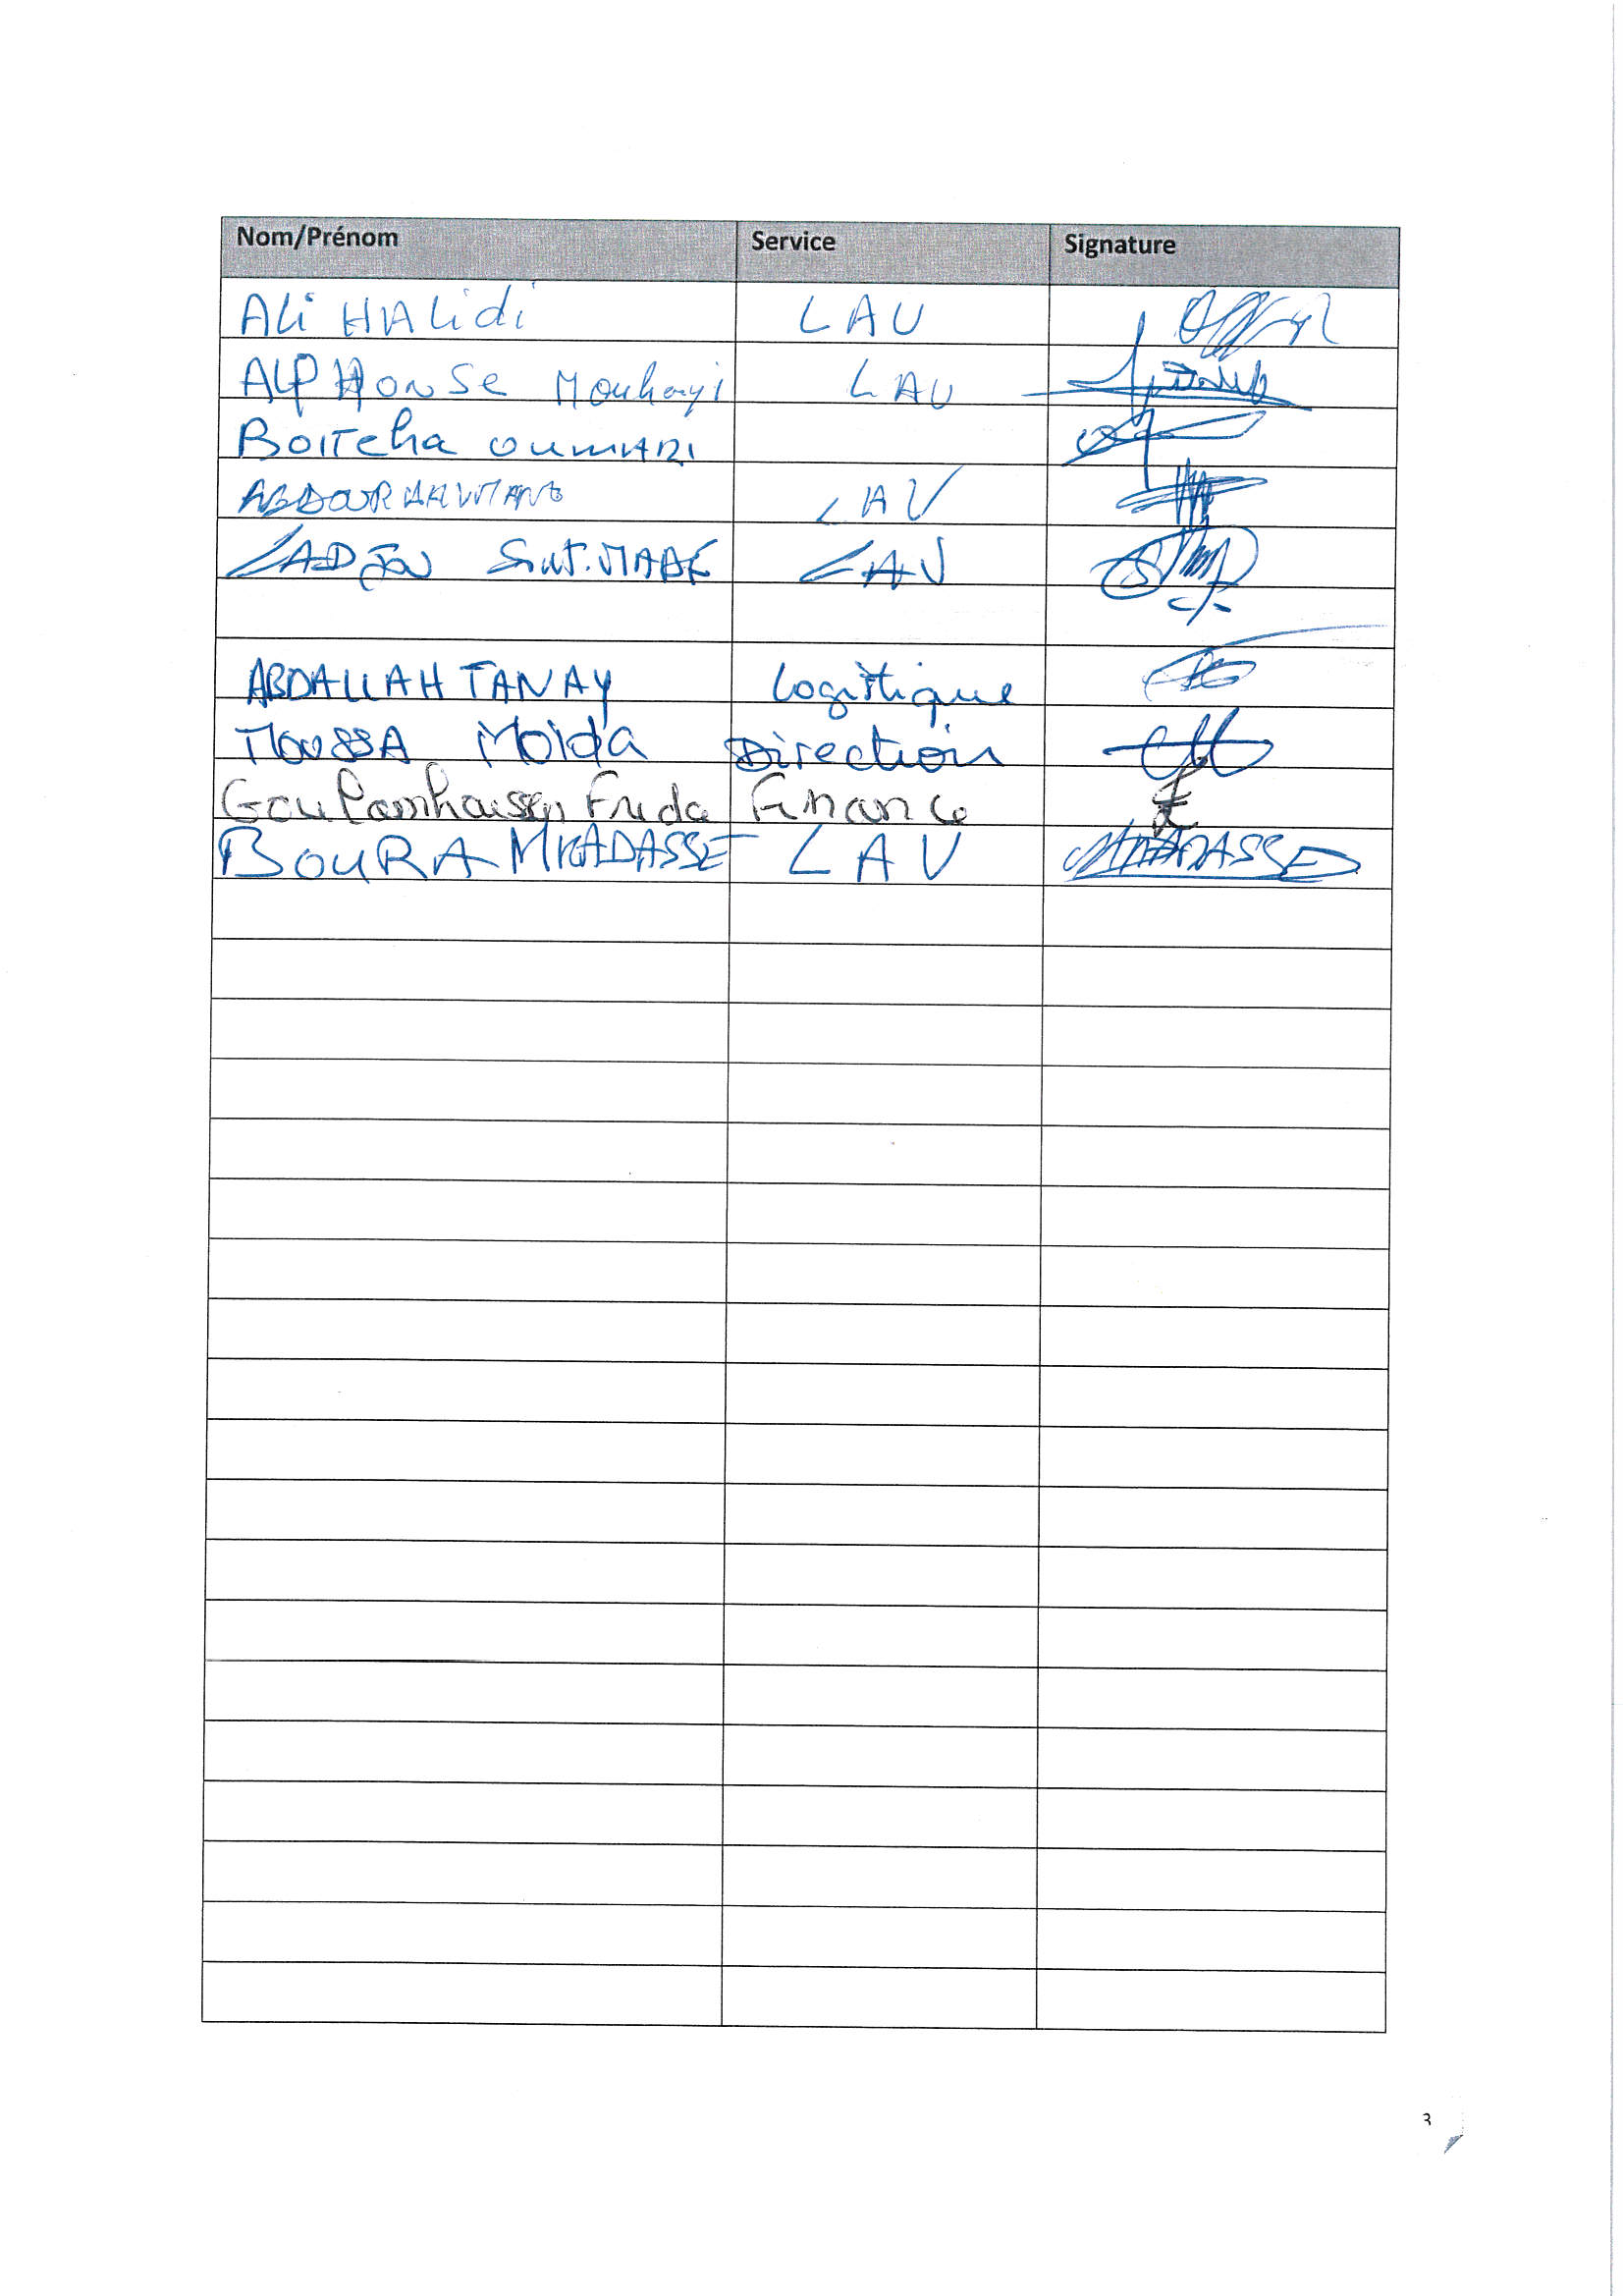 Nom/Prénom Service Signature
Ali HALidi LAU
ALPHonse Mouhayi LAU
BoiTcha oumARi
ABDOURAHMANE LAV
LADJOU LAV
ABDALLAH TANAY Logistique
MOUSSA Moida Direction
Goulamhaussen Frida Finance
BouRA MKADASSE LAV
3